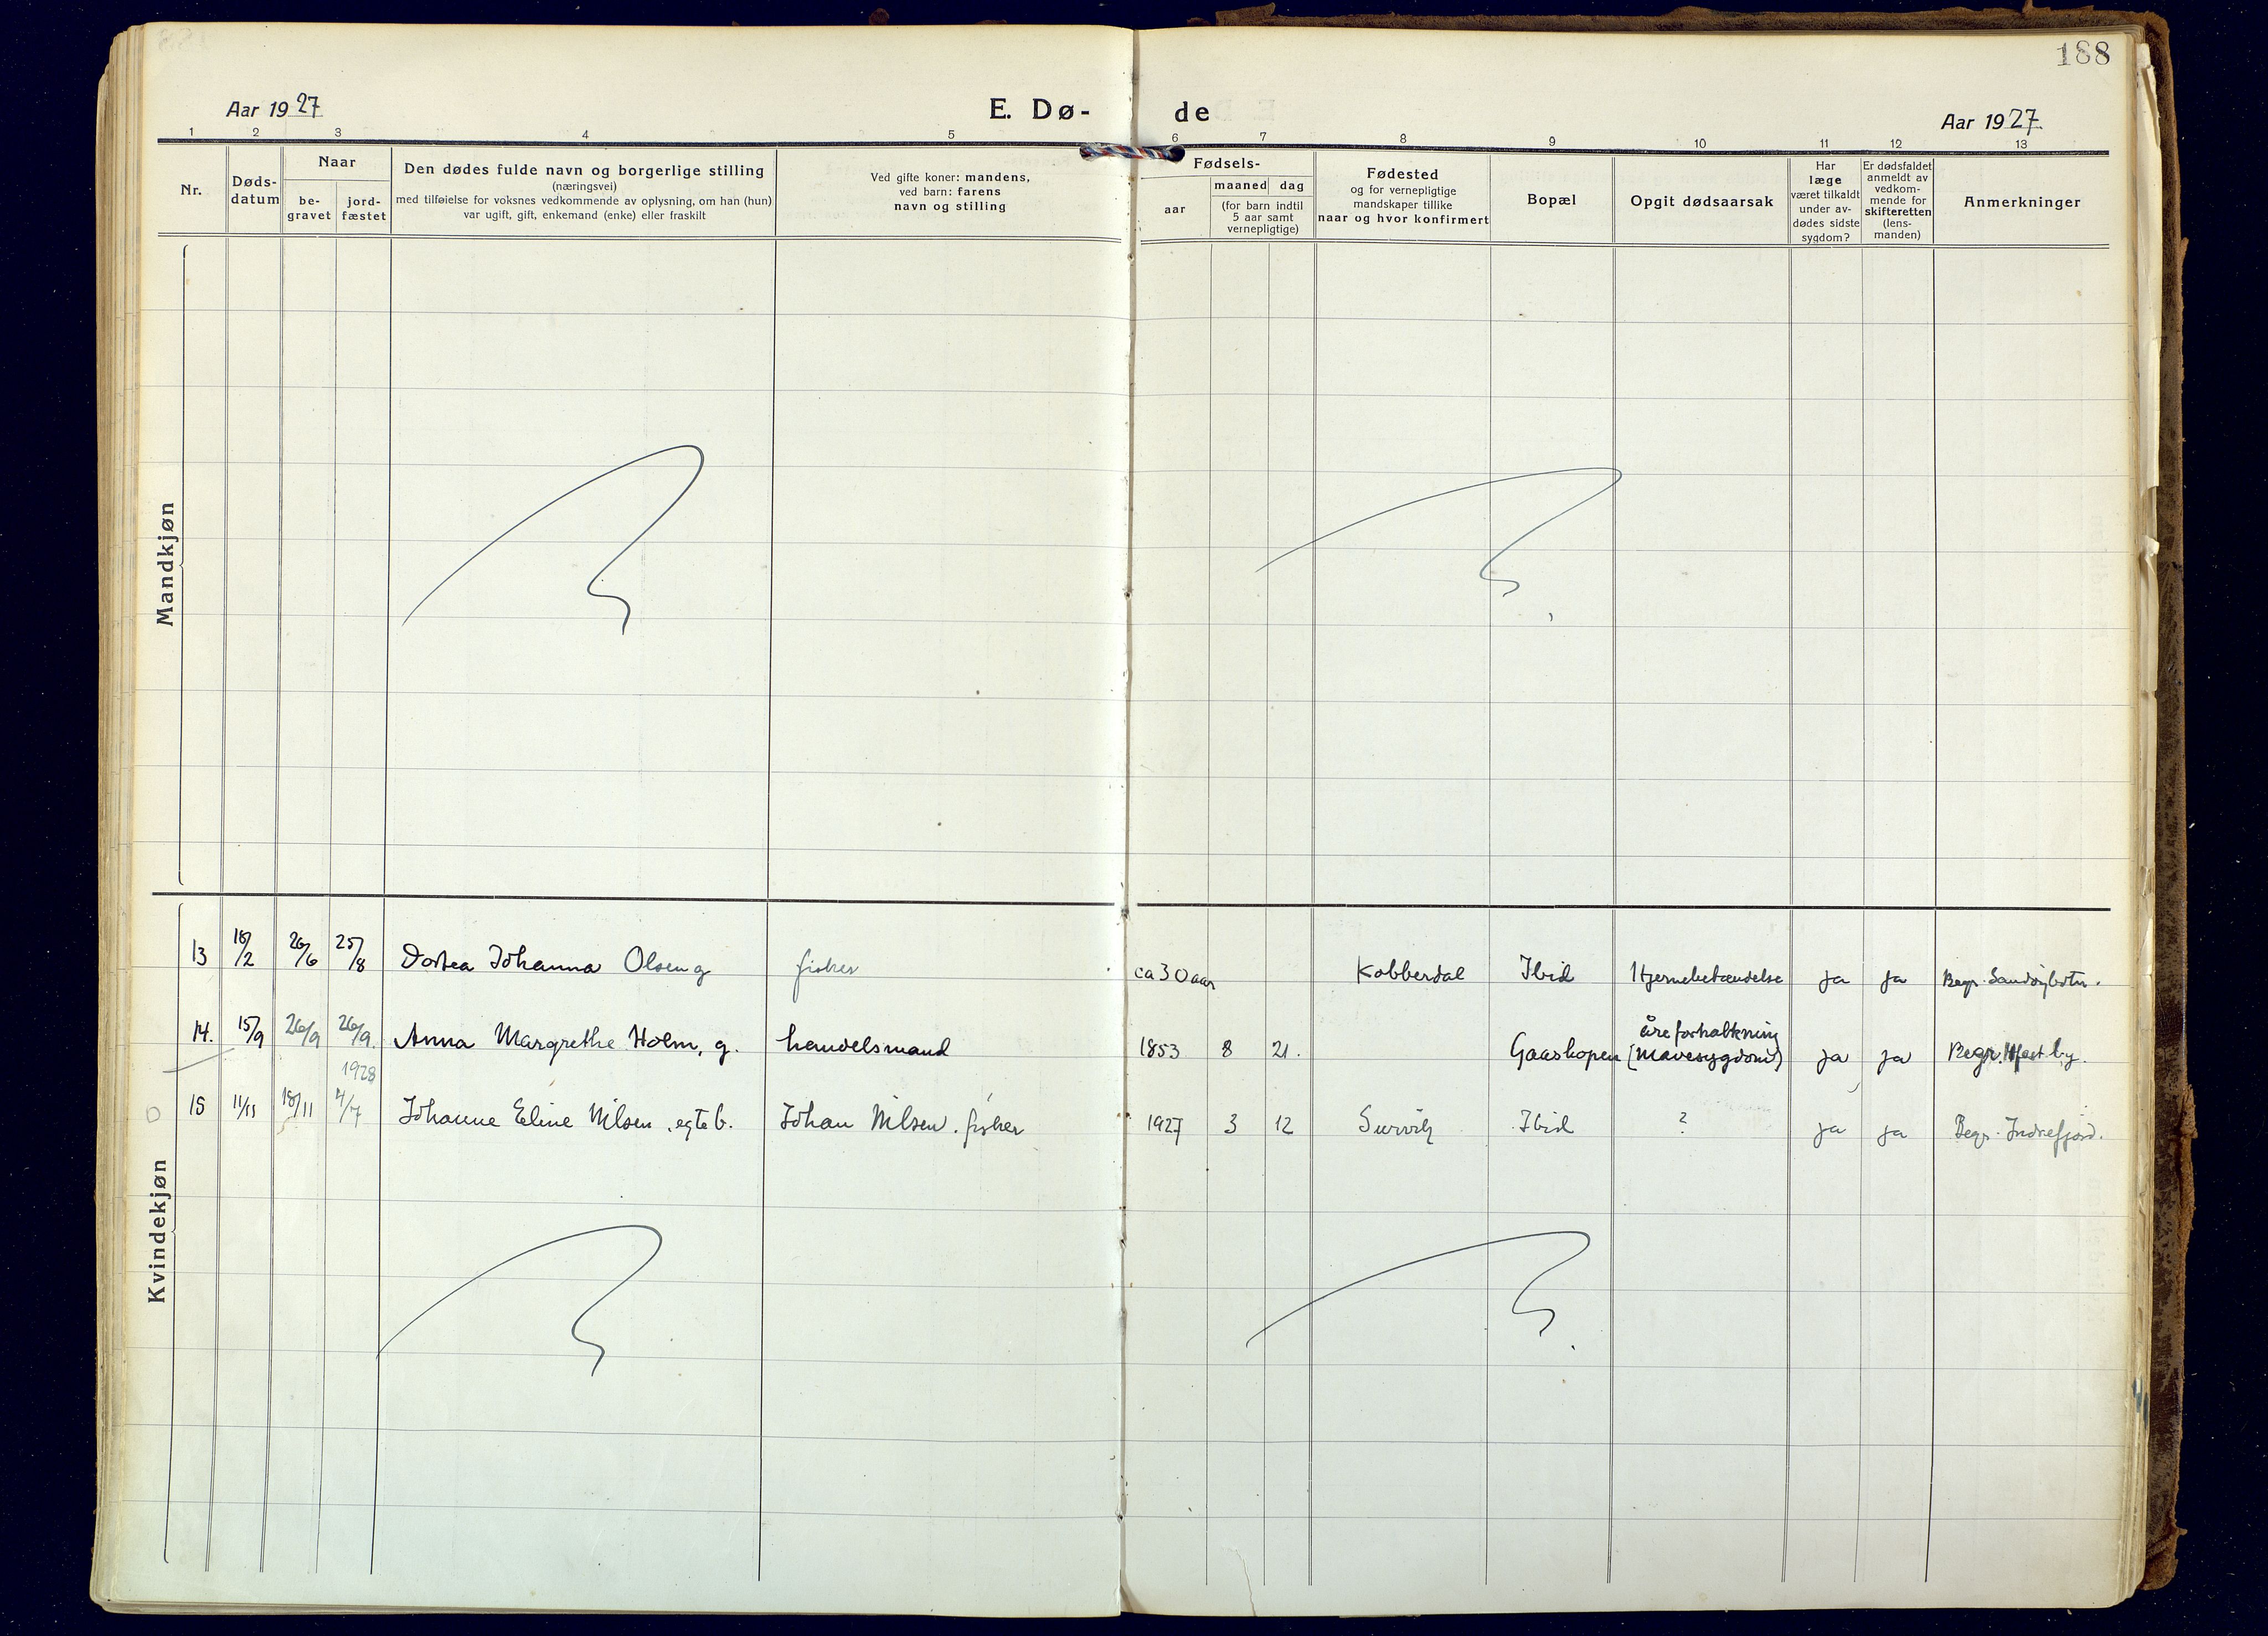 188
Aar 1927
E. Dø-
de
Aar 1927
1 2 3 4 5 6 7 8 9 10 11 12 13
Nr.
Døds-
datum
Naar
be-
gravet
jord-
fæstet
Den dødes fulde navn og borgerlige stilling
(næringsvei)
med tilføielse for voksnes vedkommende av oplysning, om han (hun)
var ugift, gift, enkemand (enke) eller fraskilt
Ved gifte koner: mandens,
ved barn: farens
navn og stilling
Fødsels-
aar
maaned dag
(for barn indtil
5 aar samt
vernepligtige)
Fødested
og for vernepligtige
mandskaper tillike
naar og hvor konfirmert
Bopæl
Opgit dødsaarsak
Har
læge
været tilkaldt
under av-
dødes sidste
sygdom?
Er dødsfaldet
anmeldt av
vedkom-
mende for
skifteretten
(lens-
manden)
Anmerkninger
Mandkjøn
Kvindekjøn
13 18/2 26/6 25/8 Dortea Johanna Olsen g fisker ca 30 aar Kobberdal Ibid Hjernebetændelse ja ja Begr. Sandøybotn.
14. 15/9 26/9 26/9. Anna Margrethe Holm, g. handelsmand 1853 8 21. Gaashopen åreforkalkning (mavesygdom) ja ja Begr. Hfest by.
1928
15 11/11 18/11 4/7 Johanne Eline Nilsen, egte b. Johan Nilsen. fisker 1927 3 12 Survik Ibid ? ja ja Begr. Indrefjord.